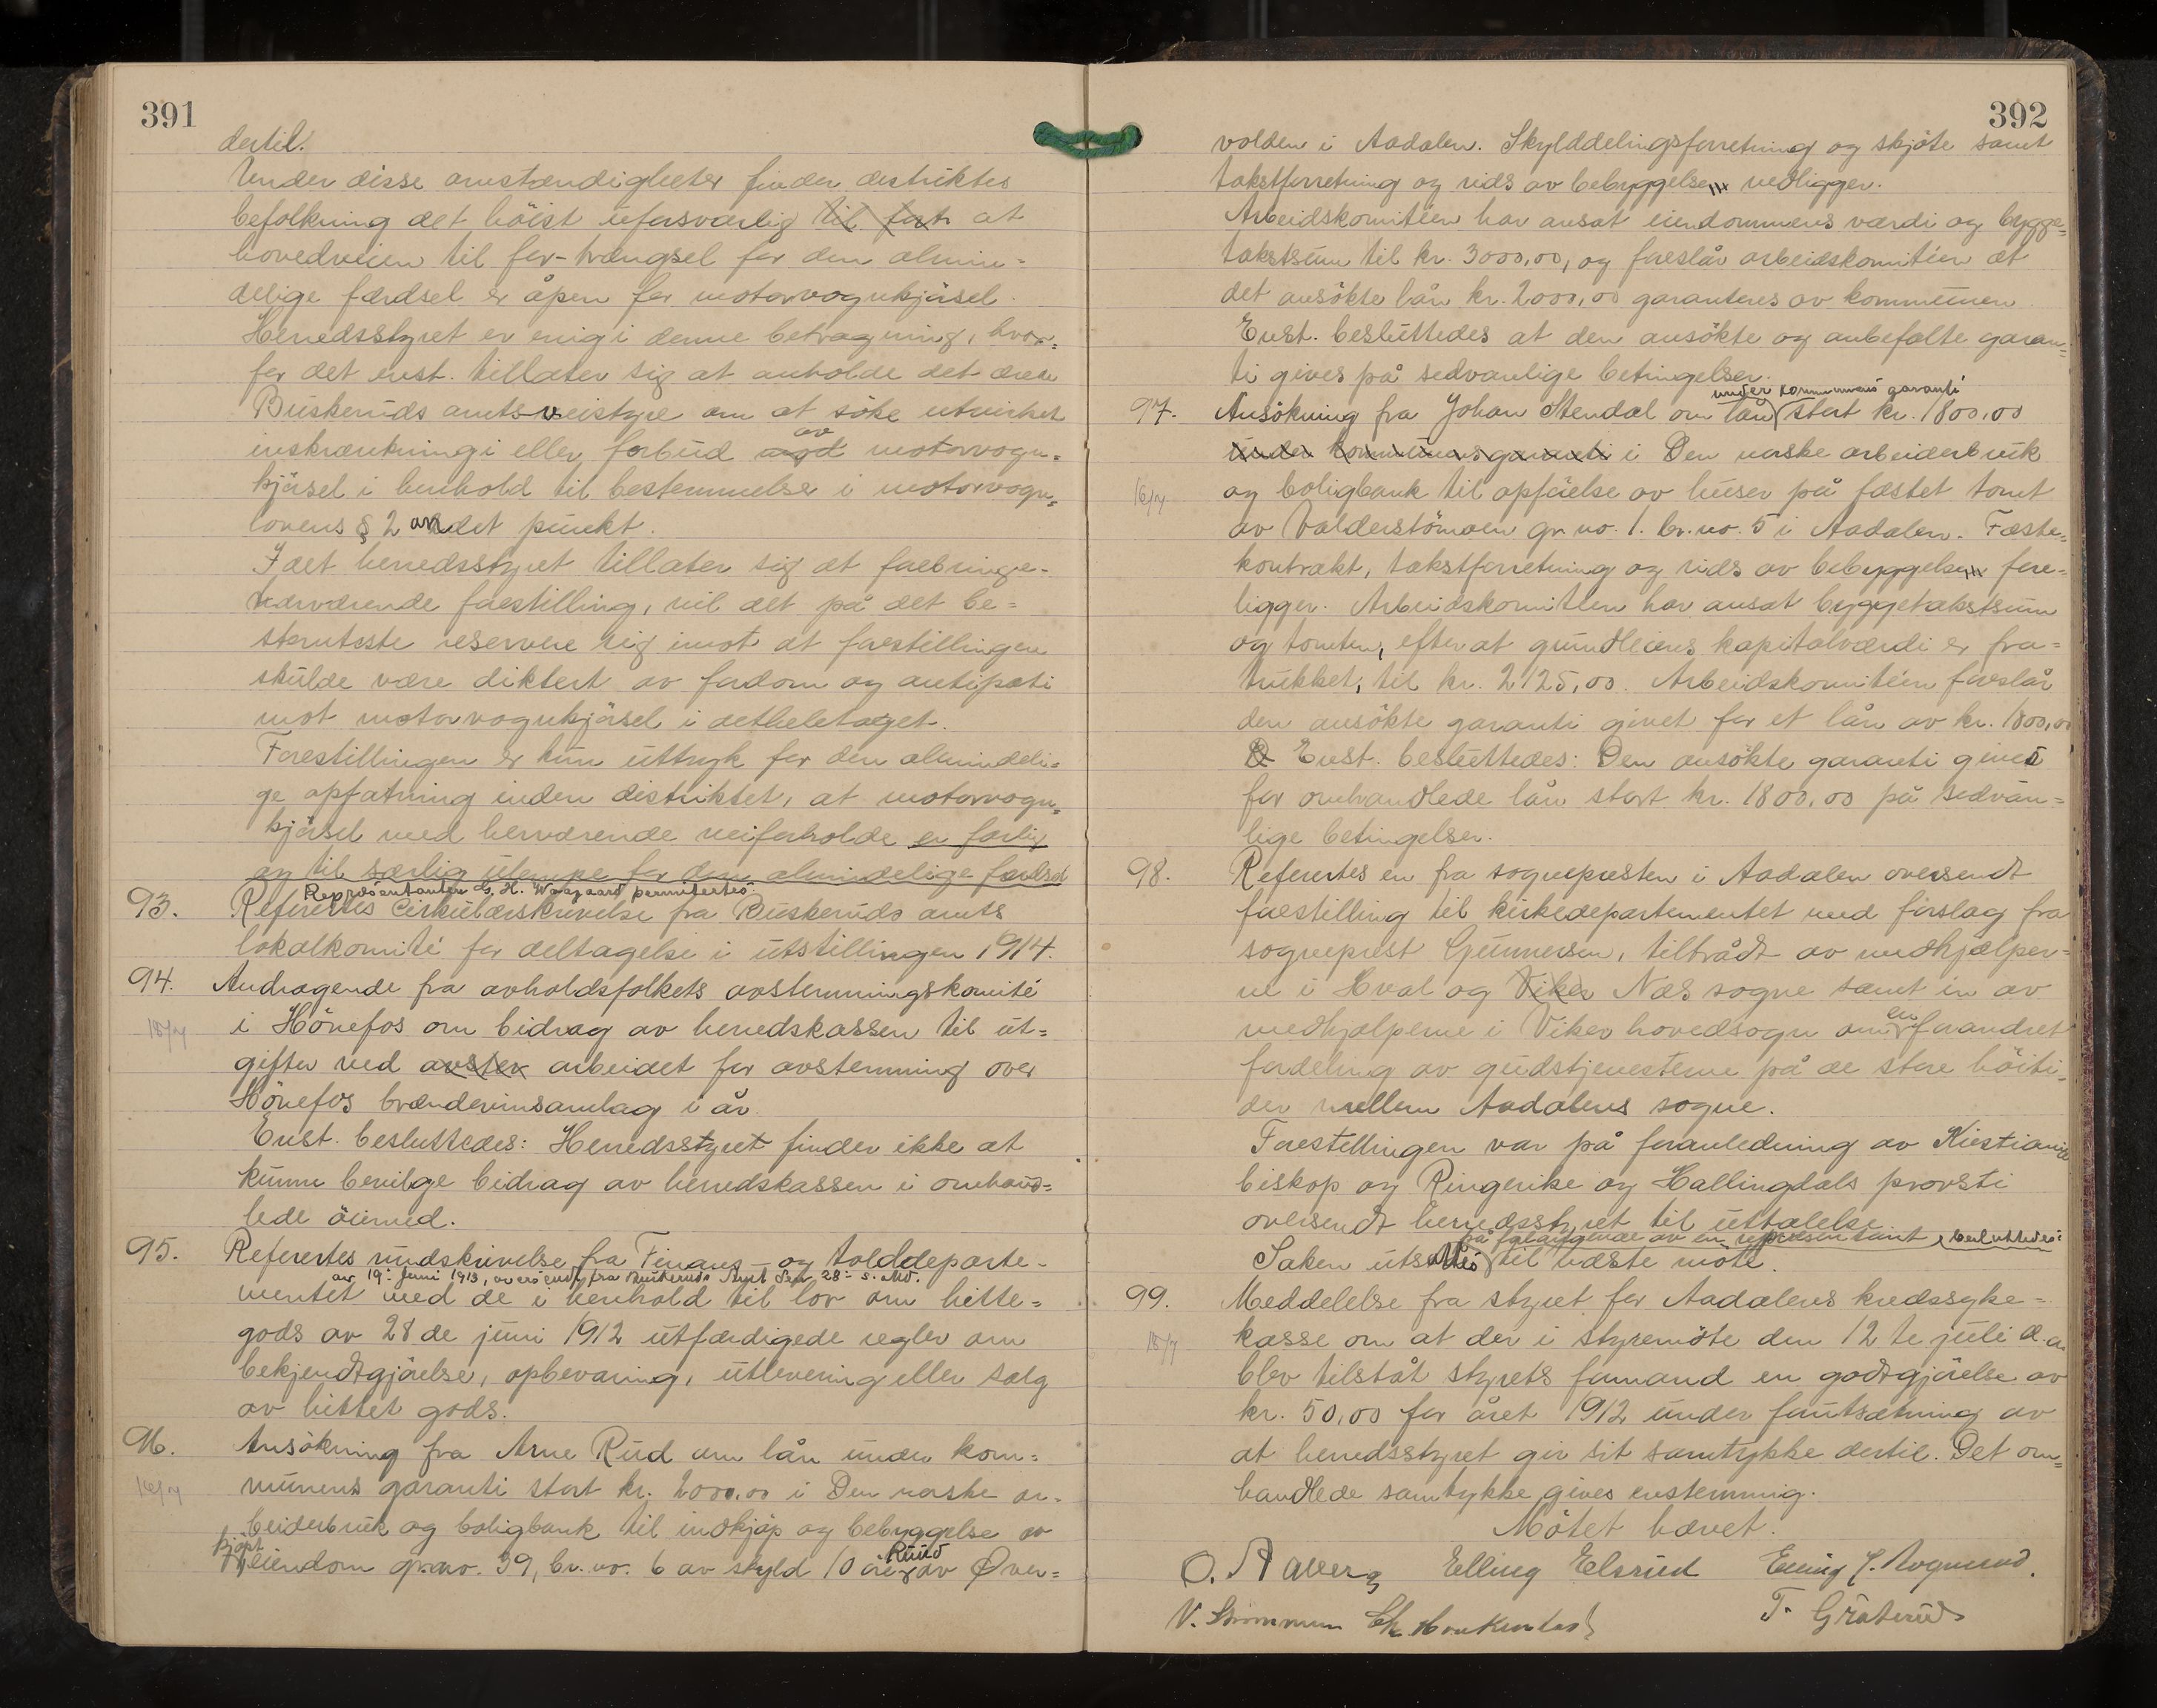 391
dertil.
Under disse omstændigheter finder distriktes
befolkning det höist uforsvarlig til fort at
hovedveien til for-trængsel for den almin=
delige færdsel er åpen for motorvognkjörsel.
Herredsstyret er enig i denne betragning, hvor=
for det enst. tillater sig at anholde det ærede
Buskeruds amtsveistyre om at söke utvirket
inskrænkning i eller forbud mot av motorvogn=
kjörsel i henhold til bestemmelse i motorvogn=
lovens § 2 andet punkt.
Idet herredsstyret tillater sig at frembringe
nærværende forestilling, vil det på det be=
stemteste reservere sig imot at forestillingen
skulde være diktert av fordom og antipati
mot motorvognkjörsel i detheletaget.
Forestillingen er kun uttryk for den almindeli=
ge opfatning inden distriktet, at motorvogn=
kjörsel med herværende veiforholde er farlig
og til særlig ulempe for den almindelige færdsel
Repræsentanten G. H. Waagaard permitertes.
93. Referertes Cirkulærskrivelse fra Buskeruds amts
lokalkomité for deltagelse i utstillingen 1914.
94. Andragende fra avholdsfolkets avstemningskomité
18/7 i Hönefos om bidrag av herredskassen til ut=
gifter ved avstem arbeidet for avstemning over
Hönefos brændevinsamlag i år.
Enst. besluttedes: Herredsstyret finder ikke at
kunne bevilge bidrag av herredskassen i omhand=
lede öiemed.
95. Referertes rundskrivelse fra Finans- og tolddeparte=
av 19. Juni 1913, oversendt fra Buskeruds Amt Sen 28. s. Md.
mentet med de i henhold til lov om hitte=
gods av 28 de juni 1912 utfærdigede regler om
bekjendtgjörelse, opbevaring, utlevering eller salg
av hittet gods.
96. Ansökning fra Arne Rud om lån under kom=
16/7 munens garanti stort kr. 2000,00 i Den norske ar=
beiderbruk og boligbank til indkjöp og bebyggelse av
kjöpt Ruud
eiendom gr. no. 39, br. no. 6 av skyld 10 öre av Över=
392
volden i Aadalen. Skylddelingsforretning og skjöte samt
takstforretning og rids av bebyggelsen vedligger.
Arbeidskomitéen har ansat eiendommens værdi og bygge=
takstsum til kr. 3000,00, og foreslår arbeidskomitéen at
det ansökte lån kr. 2000,00 garanteres av kommunen.
Enst. besluttedes at den ansökte og anbefalte garan=
ti gives på sedvanlige betingelser.
under kommunens garanti
97. Ansökning fra Johan Stendal om lån stort kr. 1800,00
under kommunens garanti i Den norske arbeiderbruk
16/7 og boligbank til opförelse av huser på fæstet tomt
av Valderstömoen gr. no. 1. br. no. 5 i Aadalen. Fæste=
kontrakt, takstforretning og rids av bebyggelsen fore=
ligger. Arbeidskomitéen har ansat byggetakstsum
og tomten, efterat grundleiens kapitalværdi er fra=
trukket, til kr. 2125,00. Arbeidskomitéen foreslår
den ansökte garanti givet for et lån av kr. 1800,00
D Enst. besluttedes: Den ansökte garanti gives
for omhandlede lån stort kr. 1800,00 på sedvan=
lige betingelser.
98. Referertes en fra sognepresten i Aadalen oversendt
forestilling til kirkedepartementet med forslag fra
sogneprest Gunnersen, tiltrådt av medhjælper=
ne i Hval og Viker Næs sogne samt in av
medhjælperne i Viker hovedsogn om en forandret
fordeling av gudstjenesterne på de store höiti=
der mellem Aadalens sogne.
Forestillingen var på foranledning av Kristiania
biskop og Ringerike og Hallingdals provsti
oversendt herredsstyret til uttalelse.
på forlangende av en repræsentant besluttedes:
Saken utsættes til næste möte.
99. Meddelelse fra styret for Aadalens kredssyke=
18/7 kasse om at der i styremöte den 12te juli d.a.
blev tilståt styrets formand en godtgjörelse av
kr. 50,00 for året 1912 under forutsætning av
at herredsstyret gir sit samtykke dertil. Det om=
handlede samtykke gives enstemmig.
Mötet hævet.
O. Aaverg Elling Elsrud Elling J.
V. Strömmen T. Gråterud